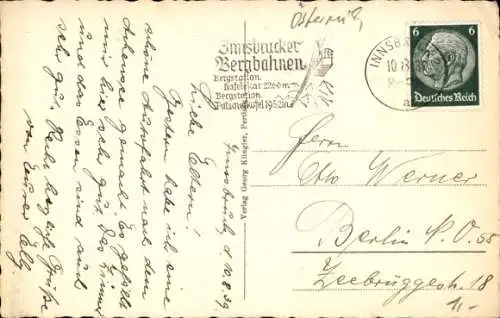 Österreich
Innsbrucker
Bergbahnen
Bergstation
Hafelekar 2260 m
Bergstation
Patscherkofel 1952 m
INNSBRUCK
6 6
Deutsches Reich
Innsbruck d. 10.8.39.
Liebe Eltern!
Gestern habe ich eine
schöne Autofahrt nach dem
Achensee gemacht. Es gefällt
mir hier sehr gut. Das Zimmer
und das Essen sind auch
sehr gut. Recht herzliche Grüße
von Eurer Elly
Verlag Georg Klingler
Herrn
Otto Werner
Berlin N.O. 55
Zeebrüggestr. 18
1,-